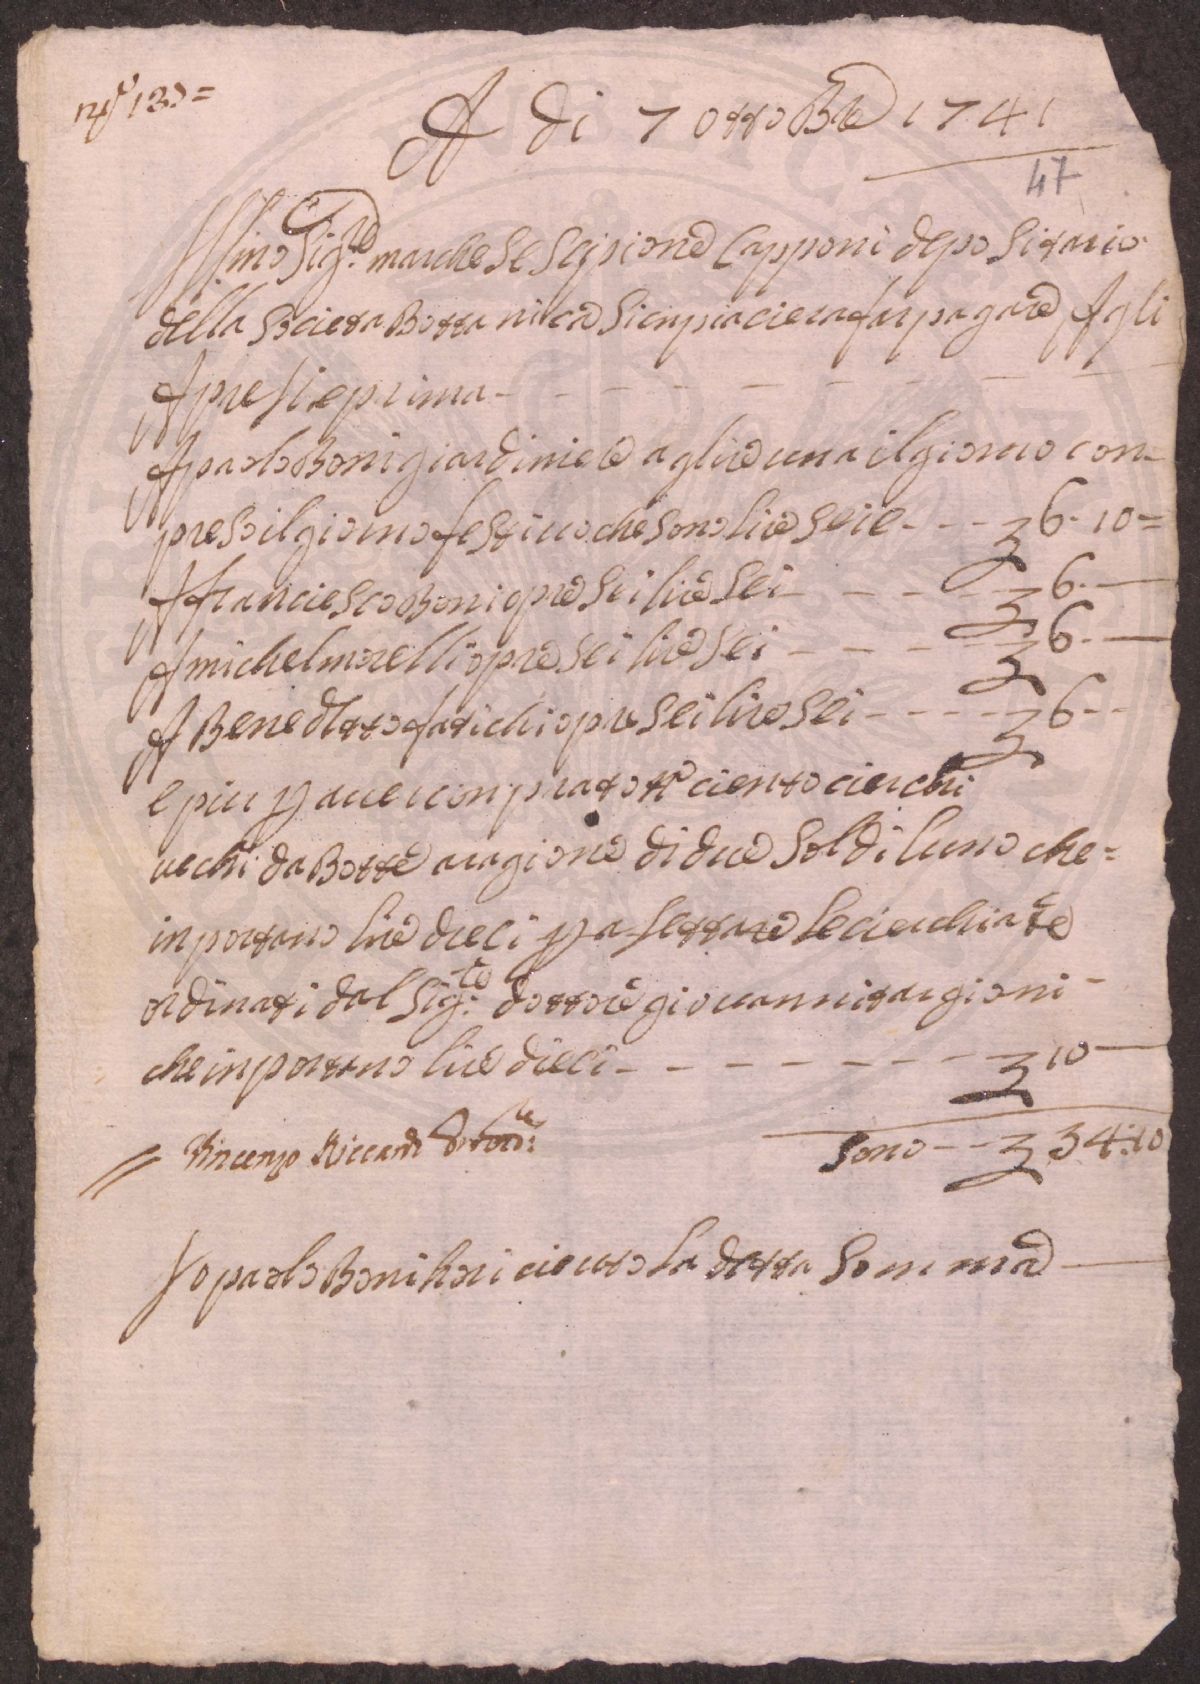 A di 7 ottobre 1741
47
Ill:mo Sig:re marchese Scipione Capponi depositario
della Societa Bottanica Si conpiaciera far pagare Agli
Apresieprima
A paolo Boni giardiniere a lire una il giorno con=
preso il giorno festiuo che sono lire seie --- 6.10=
A franciesco Boni opre sei lire sei --- 6.
A michel morelli opre sei lire sei --- 6.
A Benedetto fatichi opre sei lire sei --- 6
e piu p auer conprato n:o ciento cierchi
uechi da Botte a ragione di due soldi luno che=
inportano lire dieci p a settare le cierchiate
ordinati dal Sig:re dottore giouanni targioni
che inportano lire dieci --- 10
Vincenzo Riccardi
Sono --- 34:10
Io paolo Boni ho riceuto la detta Somma